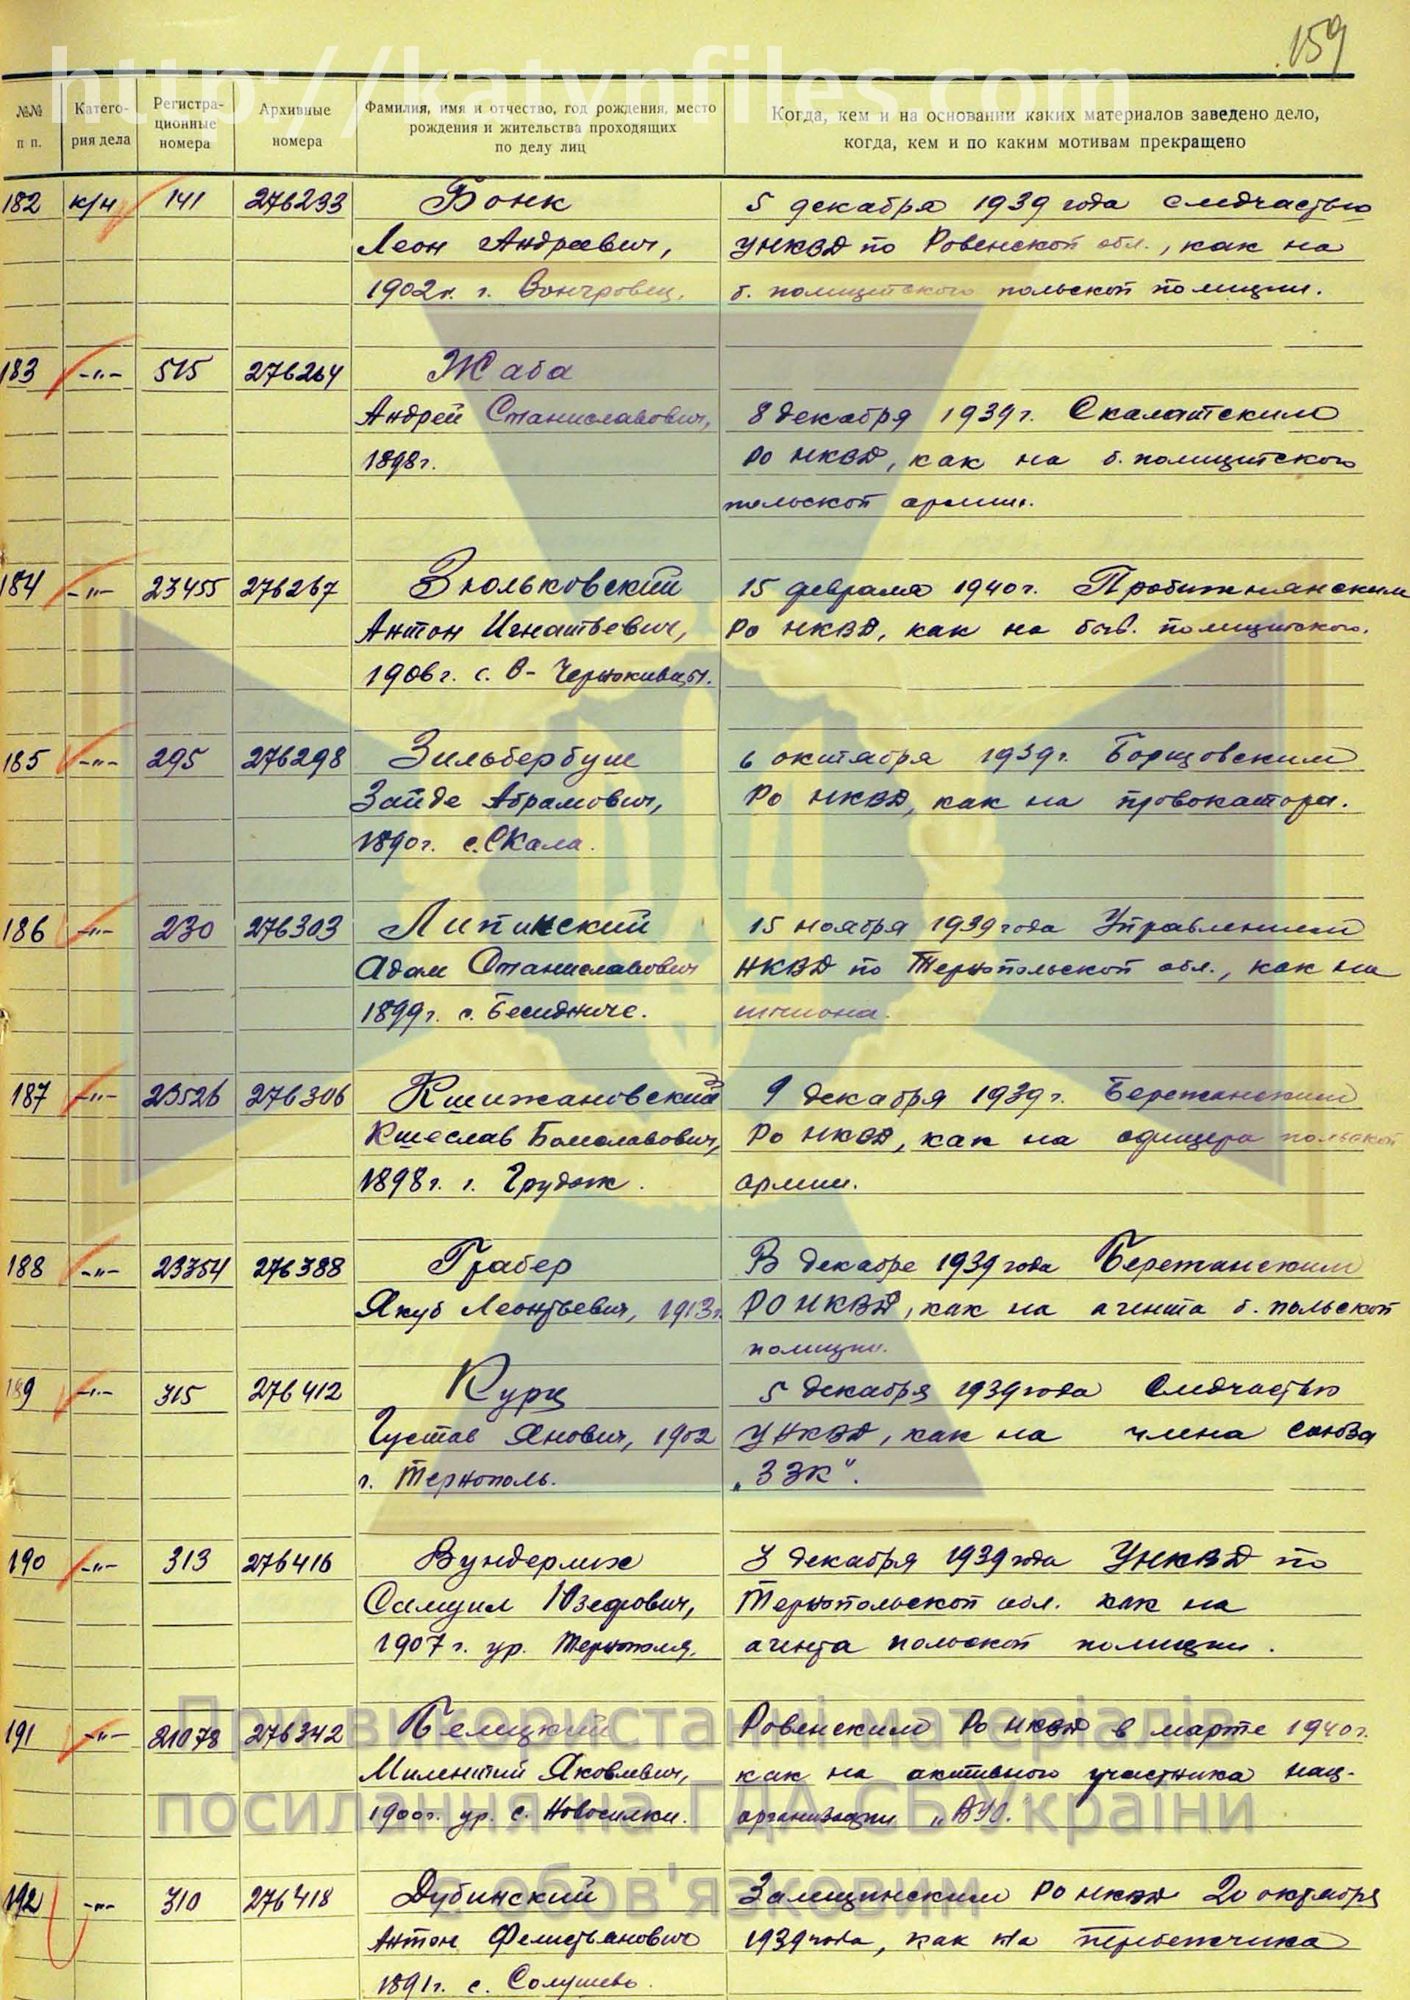 159
http://katynfiles.com
№№ п п.
Катего-
рия дела
Регистра-
ционные
номера
Архивные
номера
Фамилия, имя и отчество, год рождения, место
рождения и жительства проходящих
по делу лиц
Когда, кем и на основании каких материалов заведено дело,
когда, кем и по каким мотивам прекращено
182 к/н 141 276233 Бонк 5 декабря 1939 года следчастью
Леон Андреевич, УНКВД по Ровенской обл., как на
1902г. г. б. полицейского польской полиции.
183 -"- 515 276264 Жаба
Андрей Станиславович, 8 декабря 1939г. Скалатским
1898г. РО НКВД, как на б. полицитского
польской армии.
184 -"- 23455 276267 Зюльковский 15 февраля 1940г. Пробижнянским
Антон Игнатьевич, РО НКВД, как на быв. полицитского.
1906г. с. В-
185 -"- 295 276298 Зильбербуш 6 октября 1939г. Борщовским
Зайде Абрамович, РО НКВД, как на провокатора.
1890г. с. Скала.
186 -"- 230 276303 Липинский 15 ноября 1939 года Управлением
Адам Станиславович НКВД по Тернопольской обл., как на
1899г. с. шпиона.
187 -"- 23526 276306 Кшижановский 9 декабря 1939г. Бережанским
Кшеслав Болеславович, РО НКВД, как на офицера польской
1898г. г. Грудзж. армии.
188 -"- 23354 276388 Грабер В декабре 1939 года Бережанским
Якуб Леонтьевич, 1913г. РО НКВД, как на агента б. польской
полиции.
189 -"- 315 276412 Курц 5 декабря 1939 года Следчастью
Густав Янович, 1902 УНКВД, как на члена союза
г. Тернополь. „ЗЗК".
190 -"- 313 276416 Вундерлих 3 декабря 1939 года УНКВД по
Самуил Юзефович, Тернопольской обл. как на
1907г. ур. Тернополя. агента польской полиции.
191 -"- 21078 276342 Белецкий Ровенским РО НКВД в марте 1940г.
Милентий Яковлевич, как на активного участника нац-
1900г. ур. с. Новосилки. организации
192 -"- 310 276418 Дубинский Залещинским РО НКВД 20 октября
Антон Фелистьянович 1939 года, как на перебежчика
1891г. с.
При використанні матеріалів
посилання на ГДА СБ України
є обов'язковим